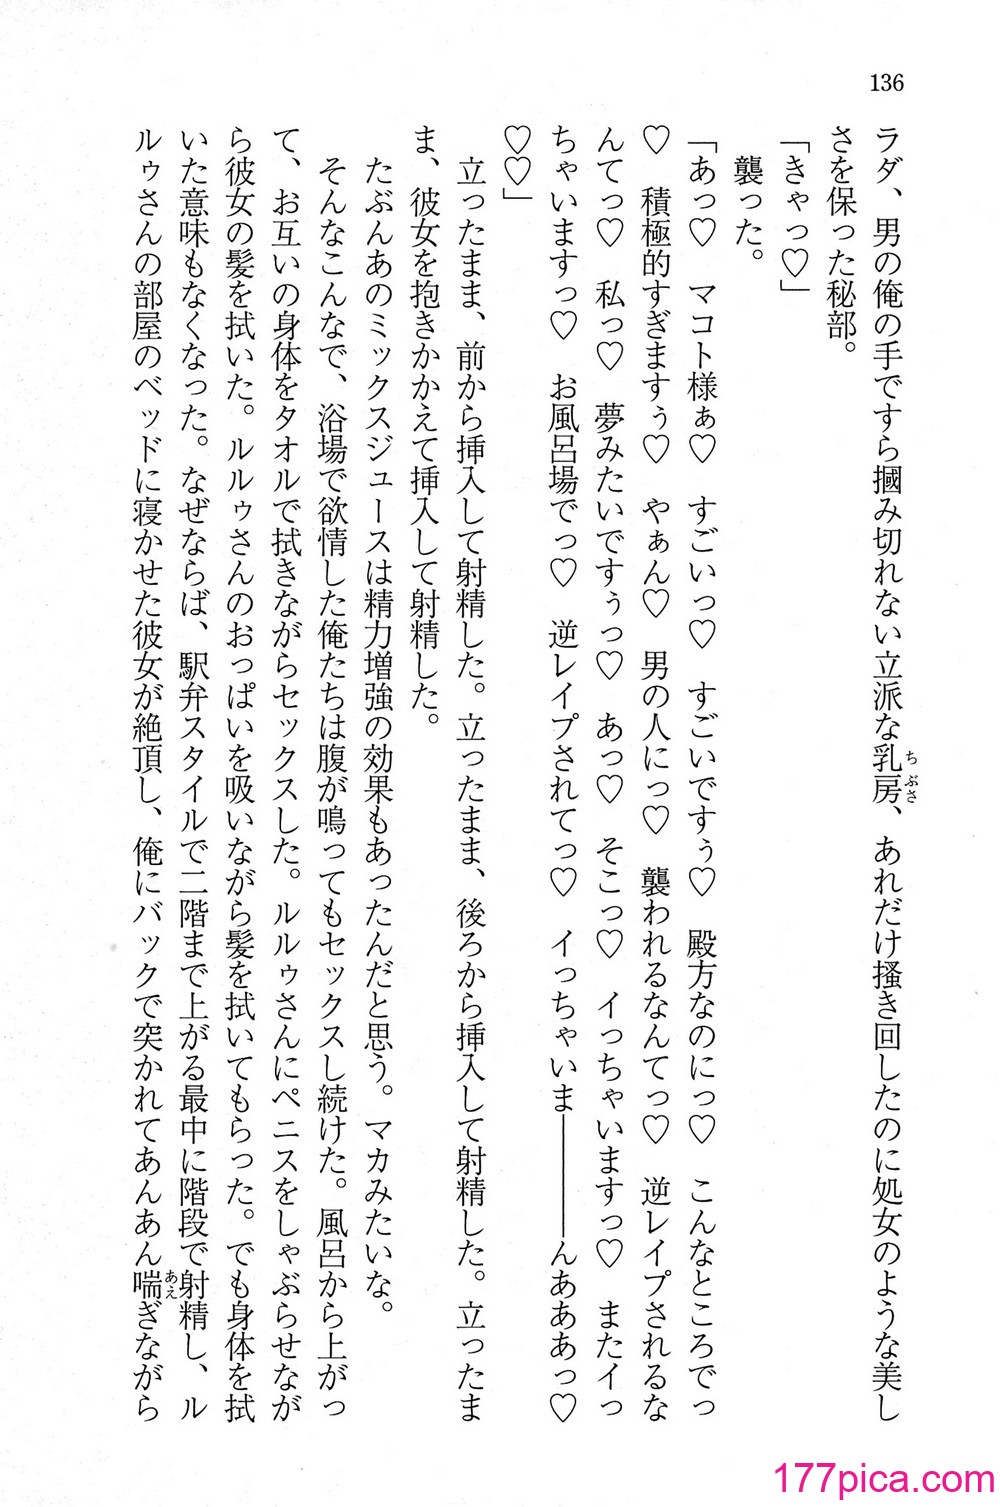 136
ラダ、男の俺の手ですら摑み切れない立派な乳房、あれだけ掻き回したのに処女のような美し
ちぶさ
さを保った秘部。
「きゃっ♡」
襲った。
「あっ♡　マコト様ぁ♡　すごいっ♡　すごいですぅ♡　殿方なのにっ♡　こんなところでっ
♡　積極的すぎますぅ♡　やぁん♡　男の人にっ♡　襲われるなんてっ♡　逆レイプされるな
んてっ♡　私っ♡　夢みたいですぅっ♡　あっ♡　そこっ♡　イっちゃいますっ♡　またイっ
ちゃいますっ♡　お風呂場でっ♡　逆レイプされてっ♡　イっちゃいま――――んあああっ♡
♡♡」
立ったまま、前から挿入して射精した。立ったまま、後ろから挿入して射精した。立ったま
ま、彼女を抱きかかえて挿入して射精した。
たぶんあのミックスジュースは精力増強の効果もあったんだと思う。マカみたいな。
そんなこんなで、浴場で欲情した俺たちは腹が鳴ってもセックスし続けた。風呂から上がっ
て、お互いの身体をタオルで拭きながらセックスした。ルルゥさんにペニスをしゃぶらせなが
ら彼女の髪を拭いた。ルルゥさんのおっぱいを吸いながら髪を拭いてもらった。でも身体を拭
いた意味もなくなった。なぜならば、駅弁スタイルで二階まで上がる最中に階段で射精し、ル
ルゥさんの部屋のベッドに寝かせた彼女が絶頂し、俺にバックで突かれてあんあん喘ぎながら
あえ
177pica.com